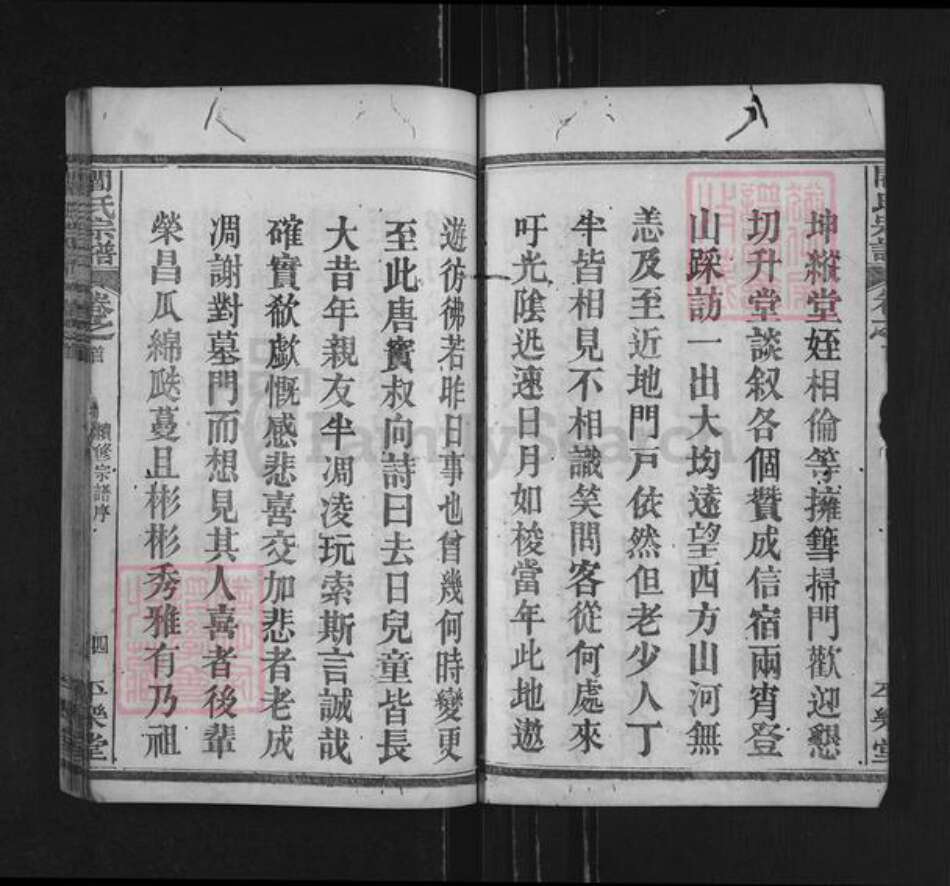 坤縱堂姪相倫等擁篲掃門歡迎懇
切升堂談叙各個贊成信宿兩宵登
山踩訪一出大均遠望西方山河無
恙及至近地門戶依然但老少人丁
半皆相見不相識笑問客從何處來
吁光陰迅速日月如梭當年此地遨
遊彷彿若昨日事也曾幾何時變更
至此唐賓叔向詩曰去日兒童皆長
大昔年親友半凋凌玩索斯言誠哉
確實欷歔慨感悲喜交加悲者老成
凋謝對墓門而想見其人喜者後輩
榮昌瓜綿瓞蔓且彬彬秀雅有乃祖
閻氏宗譜
卷之首
續修宗譜序
四
FamilySearch